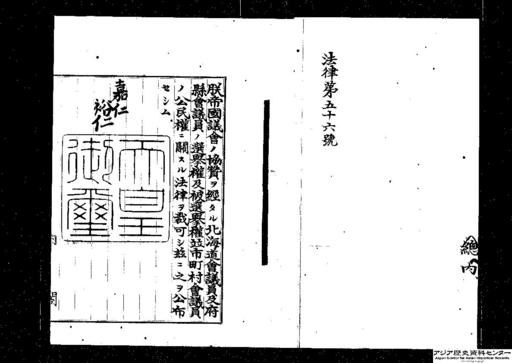 法律第五十六號
總内
朕帝國議會ノ協贊ヲ經タル北海道會議員及府
縣會議員ノ選擧權及被選擧權竝市町村會議員
ノ公民權ニ關スル法律ヲ裁可シ玆ニ之ヲ公布
セシム
嘉仁
裕仁
天皇
御璽
内閣
アジア歴史資料センター
Japan Center for Asian Historical Records